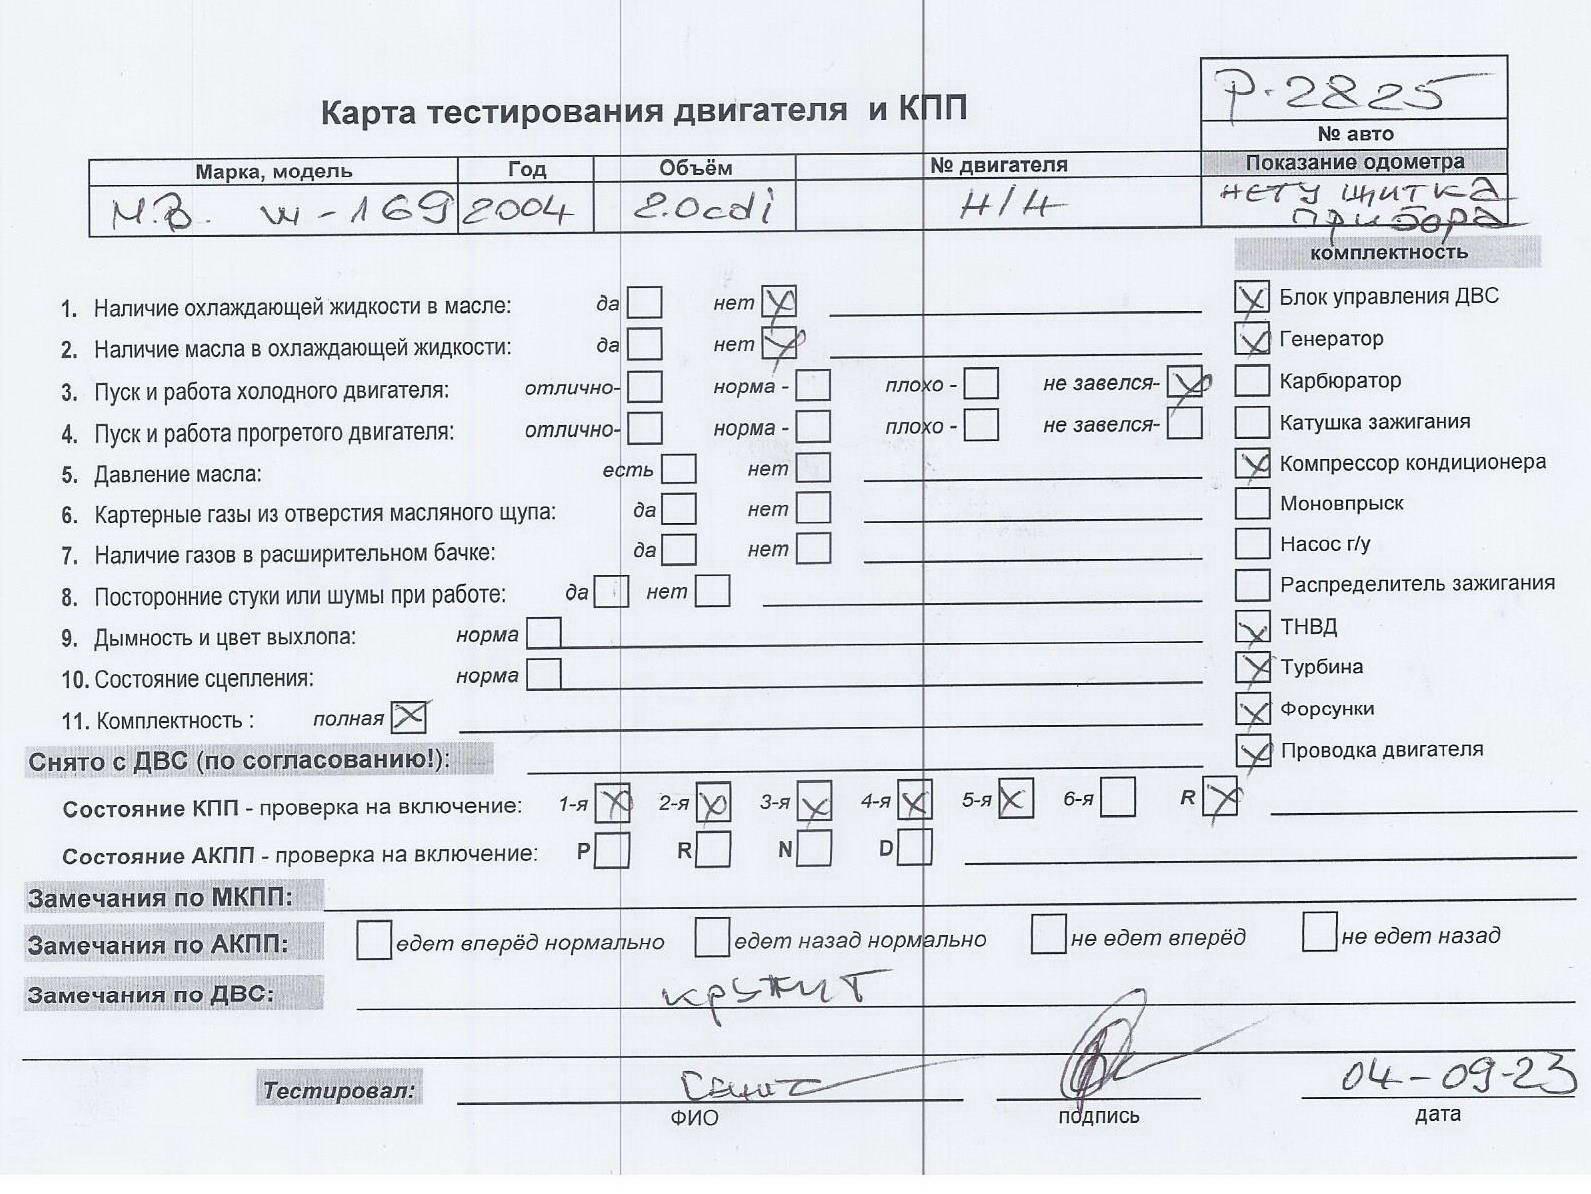 Р-2825
Карта тестирования двигателя и КПП
№ авто
Марка, модель Год Объём № двигателя Показание одометра
М.В. w-169 2004 2.0cdi Н/Н нету щитка
прибора
комплектность
1. Наличие охлаждающей жидкости в масле: да нет
Блок управления ДВС
2. Наличие масла в охлаждающей жидкости: да нет
Генератор
3. Пуск и работа холодного двигателя: отлично- норма - плохо - не завелся-
Карбюратор
4. Пуск и работа прогретого двигателя: отлично- норма - плохо - не завелся-
Катушка зажигания
5. Давление масла: есть нет
Компрессор кондиционера
6. Картерные газы из отверстия масляного щупа: да нет
Моновпрыск
7. Наличие газов в расширительном бачке: да нет
Насос г/у
8. Посторонние стуки или шумы при работе: да нет
Распределитель зажигания
9. Дымность и цвет выхлопа: норма
ТНВД
10. Состояние сцепления: норма
Турбина
11. Комплектность : полная
Форсунки
Снято с ДВС (по согласованию!):
Проводка двигателя
Состояние КПП - проверка на включение: 1-я 2-я 3-я 4-я 5-я 6-я R
Состояние АКПП - проверка на включение: P R N D
Замечания по МКПП:
Замечания по АКПП: едет вперёд нормально едет назад нормально не едет вперёд не едет назад
Замечания по ДВС: кружит
Тестировал: 04-09-23
ФИО подпись дата